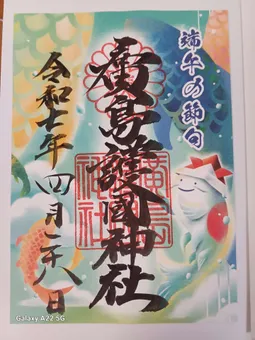 端午の節句
廣島護國神社
令和七年 四月二十八日
Galaxy A22 5G